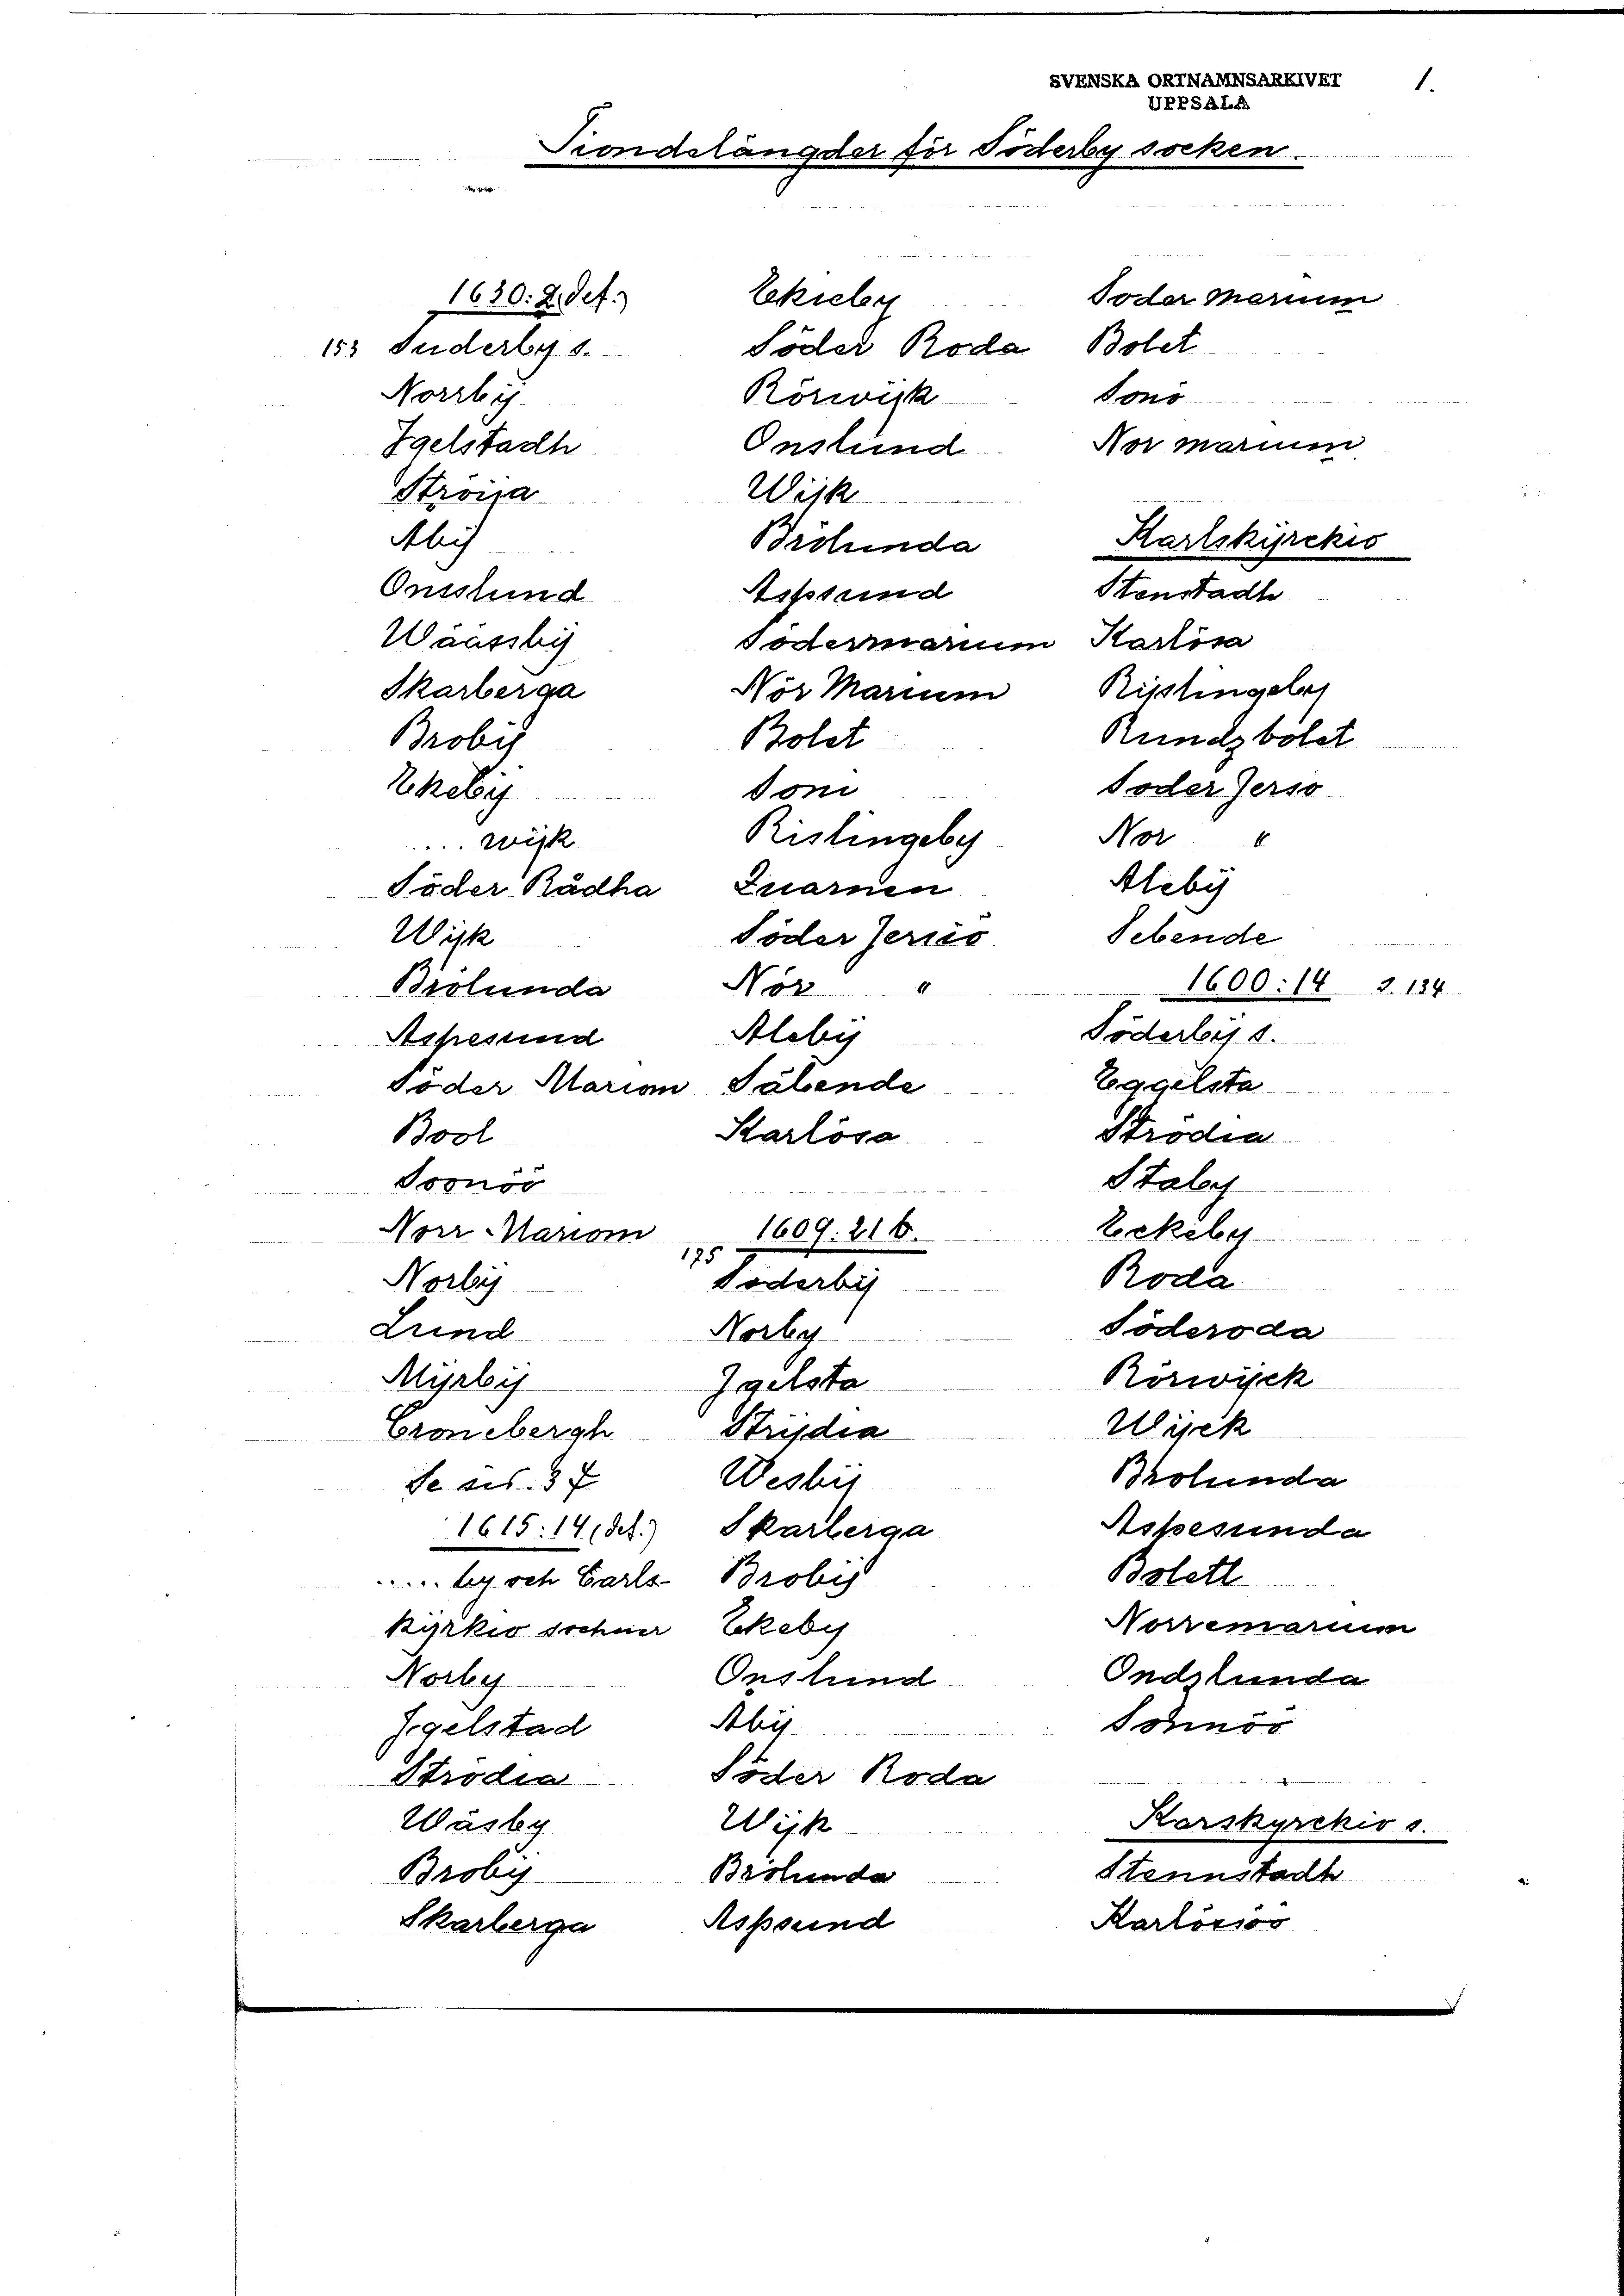 SVENSKA ORTNAMNSARKIVET
UPPSALA
1.
Tiondelängder för Söderby socken.
1630: 2 (def.)
153 Suderby s.
Norrbÿ
Igelstadh
Ströija
Åbÿ
Onsslund
Wäässbÿ
Skarberga
Brobÿ
Ekebÿ
.... wijk
Söder Rådha
Wijk
Brölunda
Aspesund
Söder Mariom
Bool
Soonöö
Norr Mariom
Norbÿ
Lund
Mÿrbÿ
Cronebergh
Se sid. 37
1615: 14 (def.)
..... by och Carls-
kÿrkio sochner
Norby
Jegelstad
Strödia
Wäsby
Broby
Skarberga
Ekieby
Söder Roda
Rörwijk
Onslund
Wijk
Brölunda
Aspsund
Södermarium
Nör Marium
Bolet
Soni
Rislingeby
Quarnen
Söder Jersiö
Nör "
Alebÿ
Säbende
Karlösa
1609: 21 b.
175 Söderbÿ
Norby
Igelsta
Strijdia
Wesbÿ
Skarberga
Brobÿ
Ekeby
Onslund
Åbÿ
Söder Roda
Wijk
Brölunda
Aspsund
Soder Marium
Bolet
Sonö
Nor marium
Karlskÿrckio
Stenstadh
Karlösa
Rijslingeby
Rundzbölet
Soder Jersö
Nor "
Alebÿ
Sebende
1600: 14 S. 134
Söderbÿ s.
Eggelsta
Strödia
Staby
Eckeby
Roda
Söderoda
Rörwijck
Wijck
Brolunda
Aspesunda
Bolett
Norremarium
Ondzlunda
Sönnöö
Karskyrckio s.
Stennstadh
Karlösiöö